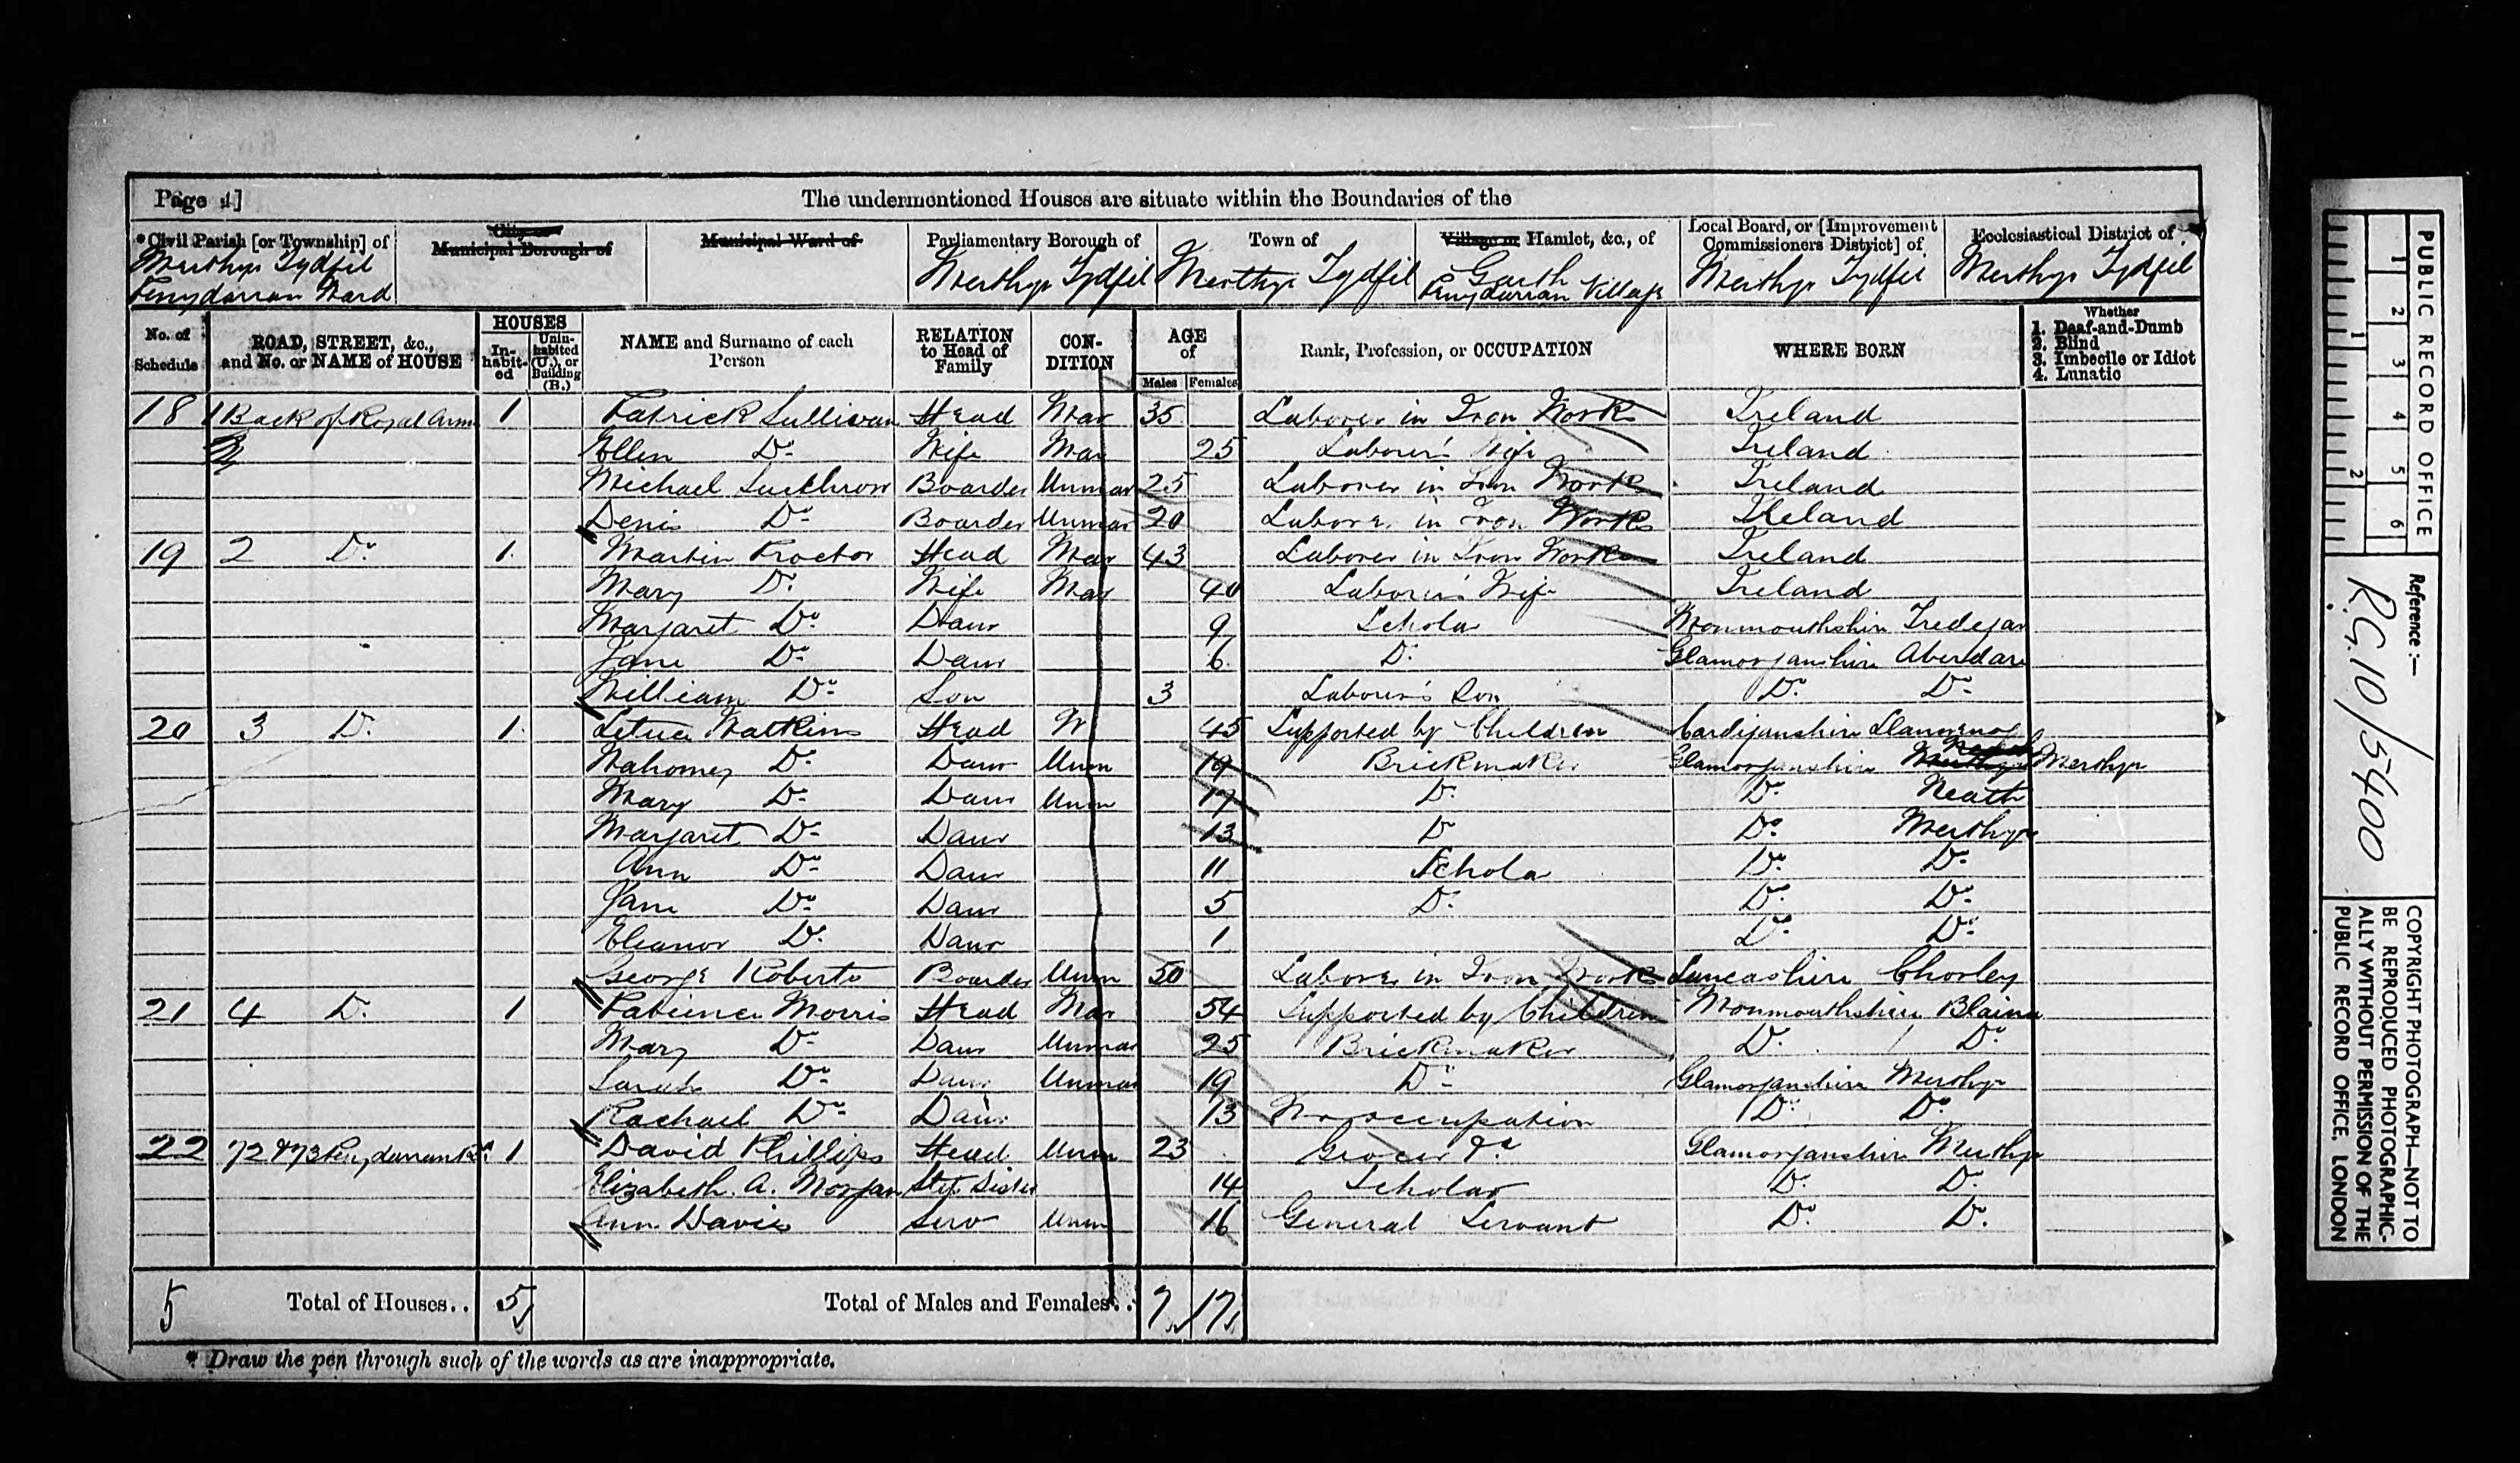 Page 4]
The undermentioned Houses are situate within the Boundaries of the
*Civil Parish [or Township] of
City or Municipal Borough of
Municipal Ward of
Parliamentary Borough of
Town of
Village or Hamlet, &c., of
Local Board, or [Improvement Commissioners District] of
Ecclesiastical District of
Merthyr Tydfil Penydarran Ward
Merthyr Tydfil
Merthyr Tydfil
Garth Penydarran Village
Merthyr Tydfil
Merthyr Tydfil
No. of Schedule
ROAD, STREET, &c., and No. or NAME of HOUSE
HOUSES
In-habit-ed
Unin-habited (U.), or Building (B.)
NAME and Surname of each Person
RELATION to Head of Family
CON-DITION
AGE of
Males
Females
Rank, Profession, or OCCUPATION
WHERE BORN
Whether
1. Deaf-and-Dumb
2. Blind
3. Imbecile or Idiot
4. Lunatic
18 1 Back of Royal Arms 1 Patrick Sullivan Head Mar 35 Laborer in Iron Work Ireland
Ellen Do Wife Mar 25 Laborer's Wife Ireland
Michael Boarder Unmar 25 Laborer in Iron Work Ireland
Denis Do Boarder Unmar 20 Laborer in Iron Works Ireland
19 2 Do 1 Martin Proctor Head Mar 43 Laborer in Iron Work Ireland
Mary Do Wife Mar 40 Laborer's Wife Ireland
Margaret Do Daur 9 Scholar Monmouthshire Tredegar
Jane Do Daur 6 Do Glamorganshire Aberdare
William Do Son 3 Laborer's Son Do Do
20 3 Do 1 Letitia Watkins Head W 45 Supported by Children Cardiganshire
Do Daur Unm 19 Brickmaker Glamorganshire Merthyr
Mary Do Daur Unm 17 Do Do Neath
Margaret Do Daur 13 Do Do Merthyr
Ann Do Daur 11 Schola Do Do
Jane Do Daur 5 Do Do Do
Eleanor Do Daur 1 Do Do
George Roberts Boarder Unm 50 Laborer in Iron Work Lancashire Chorley
21 4 Do 1 Patience Morris Head Mar 54 Supported by Children Monmouthshire Blaina
Mary Do Daur Unmar 25 Brickmaker Do Do
Sarah Do Daur Unmar 19 Do Glamorganshire Merthyr
Rachael Do Daur 13 No occupation Do Do
22 72 & 73 Penydarran Rd 1 David Phillips Head Unm 23 Grocer &c Glamorganshire Merthyr
Elizabeth. A. Morgan Step Sister 14 Scholar Do Do
Ann Davies Serv Unm 16 General Servant Do Do
5 Total of Houses.. 5 Total of Males and Females.. 7 17
* Draw the pen through such of the words as are inappropriate.
PUBLIC RECORD OFFICE
1 2 3 4 5 6
1 2
Reference:—
R.G. 10/5400
COPYRIGHT PHOTOGRAPH—NOT TO
BE REPRODUCED PHOTOGRAPHIC-
ALLY WITHOUT PERMISSION OF THE
PUBLIC RECORD OFFICE, LONDON